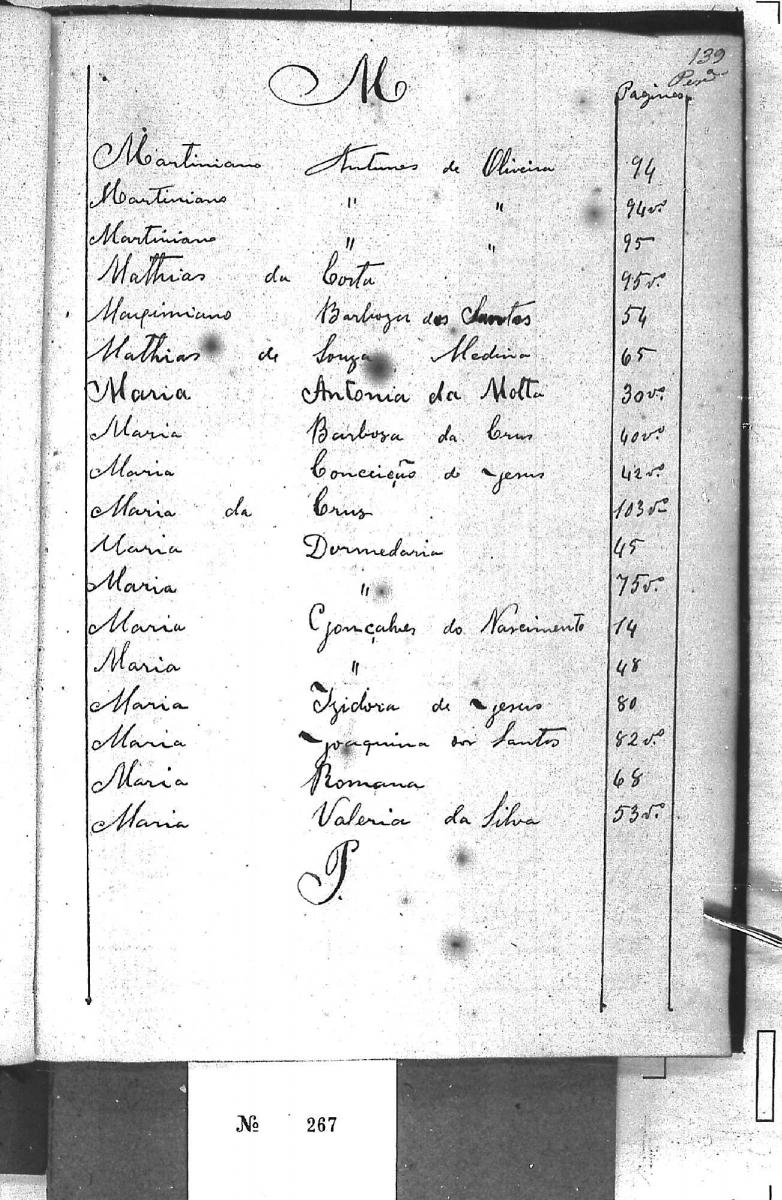 139
M
Paginas
Martiniano Antunes de Oliveira 94
Martiniano " " 94vº
Martiniano " " 95
Mathias da Costa 95vº
Maximiano Barboza dos Santos 54
Mathias de Souza Medina 65
Maria Antonia da Motta 30vº
Maria Barboza da Crus 40vº
Maria Conceição de Jesus 42vº
Maria da Cruz 103vº
Maria Dormedaria 45
Maria " 75vº
Maria Gonçalves do Nascimento 14
Maria " 48
Maria Izidora de Jesus 80
Maria Joaquina dos Santos 82vº
Maria Romana 68
Maria Valeria da Silva 53vº
P.
Nº 267